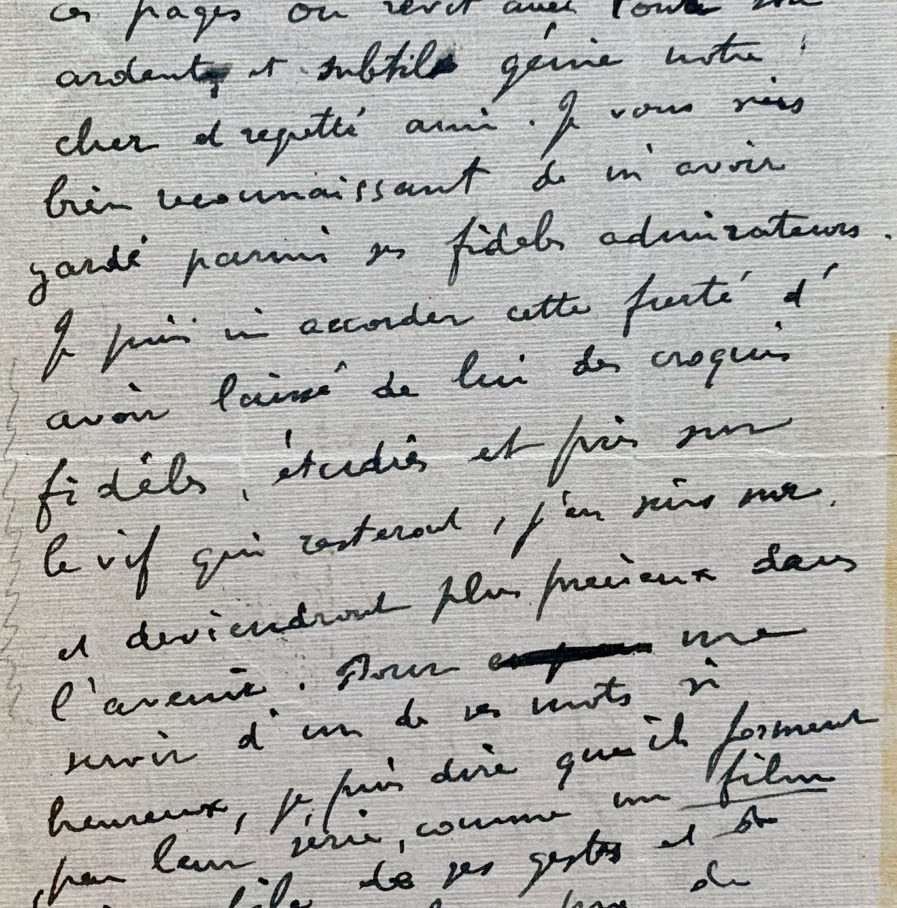 ces pages où revit avec tout son
ardent et subtil génie notre
cher et regretté ami. Je vous suis
bien reconnaissant de m'avoir
gardé parmi ses fidèles admirateurs.
Je puis m'accorder cette fierté d'
avoir laissé de lui des croquis
fidèles, étudiés et pris sur
le vif qui resteront, j'en suis sur,
et deviendront plus précieux dans
l'avenir. Pour me
servir d'un de ses mots si
heureux, je puis dire qu'ils forment
par leur série, comme un film
de ses gestes et de
de